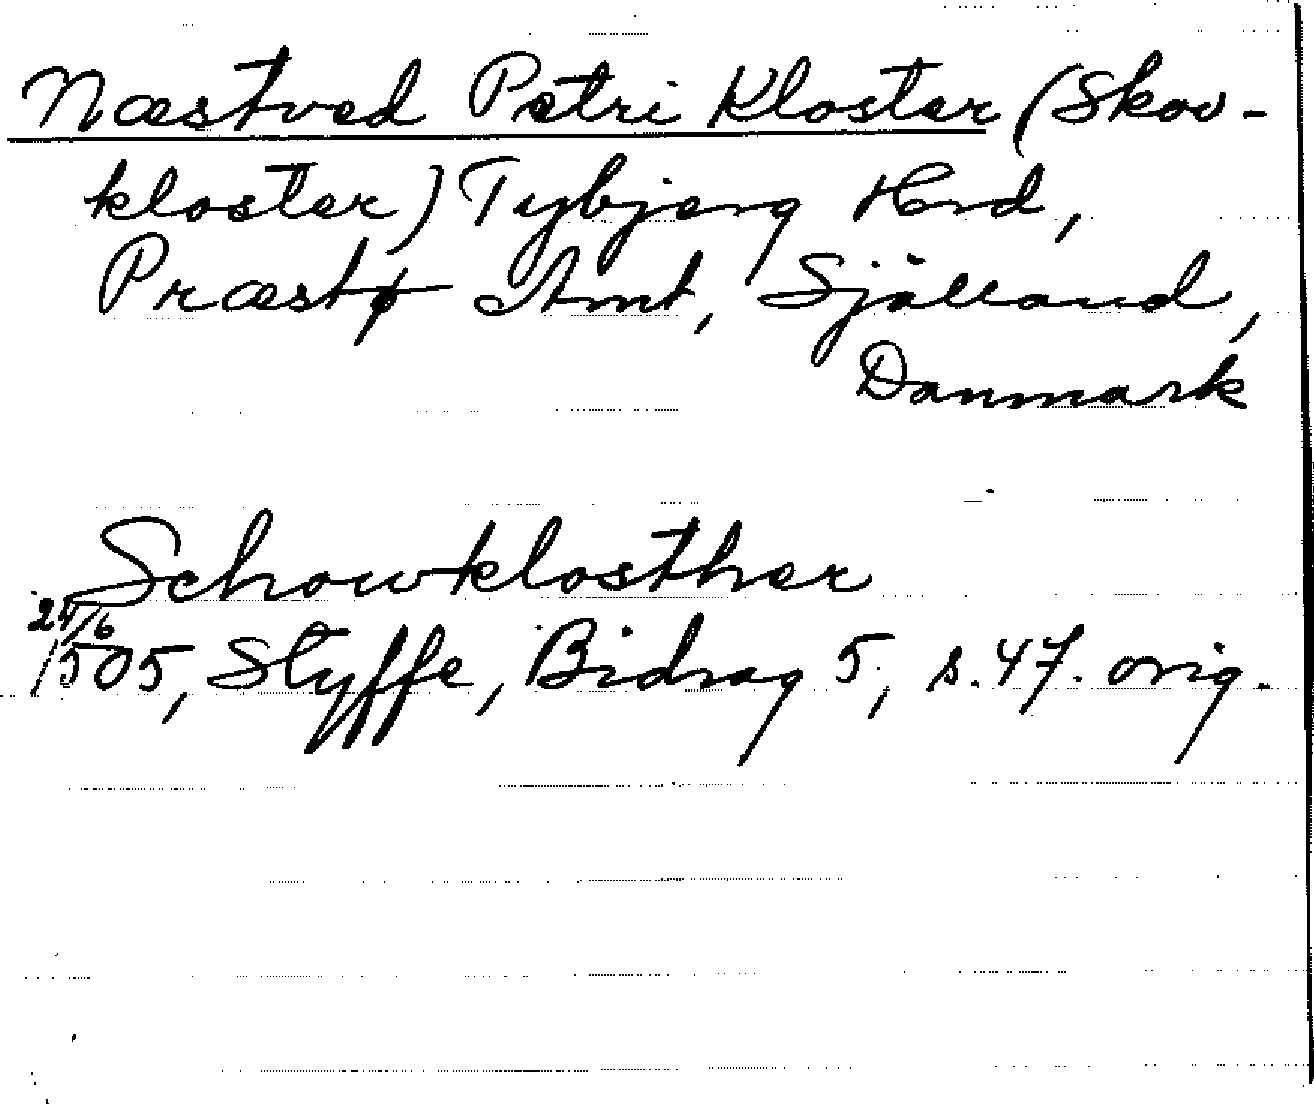 Næstved Petri Kloster (Skov-
kloster) Tybjerg Hrd,
Præstø Amt, Själland,
Danmark
Schowklosther
24/6
1505, Styffe, Bidrag 5, s. 47. orig.